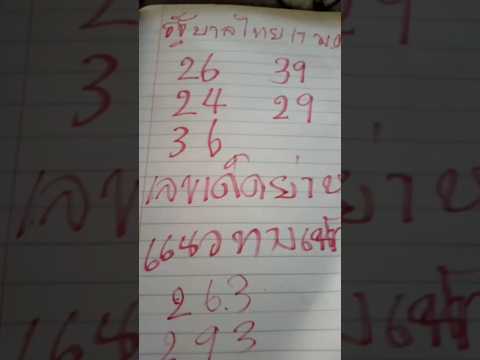 รัฐบาลไทย 17 ม.ค
26 39
24 29
36
เลขเด็ดย่าน
แนวทาง
263
293